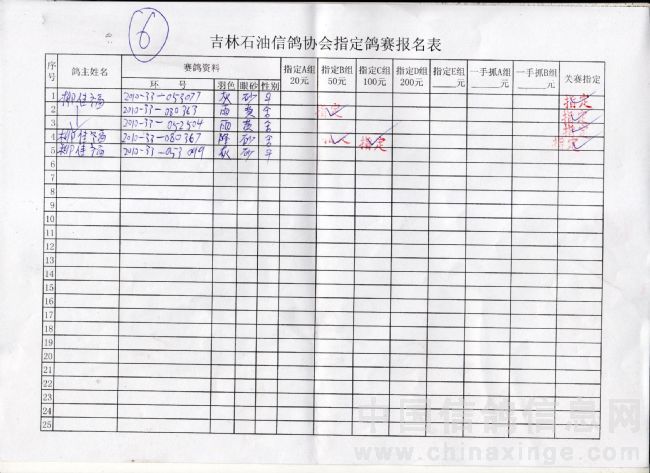 6
吉林石油信鸽协会指定鸽赛报名表
序号 鸽主姓名 赛鸽资料 指定A组20元 指定B组50元 指定C组100元 指定D组200元 指定E组____元 一手抓A组____元 一手抓B组____元 关赛指定
环 号 羽色 眼砂 性别
1 2010-33-053077 灰 砂 指定
2 2010-33-080363 雨 黄 指定 指定
3 2010-33-052504 雨 黄 指定
4 2010-33-080367 砂 指定 指定
5 2010-33-053099 灰 砂
6
7
8
9
10
11
12
13
14
15
16
17
18
19
20
21
22
23
24
25
中国信鸽信息网
www.chinaxinge.com